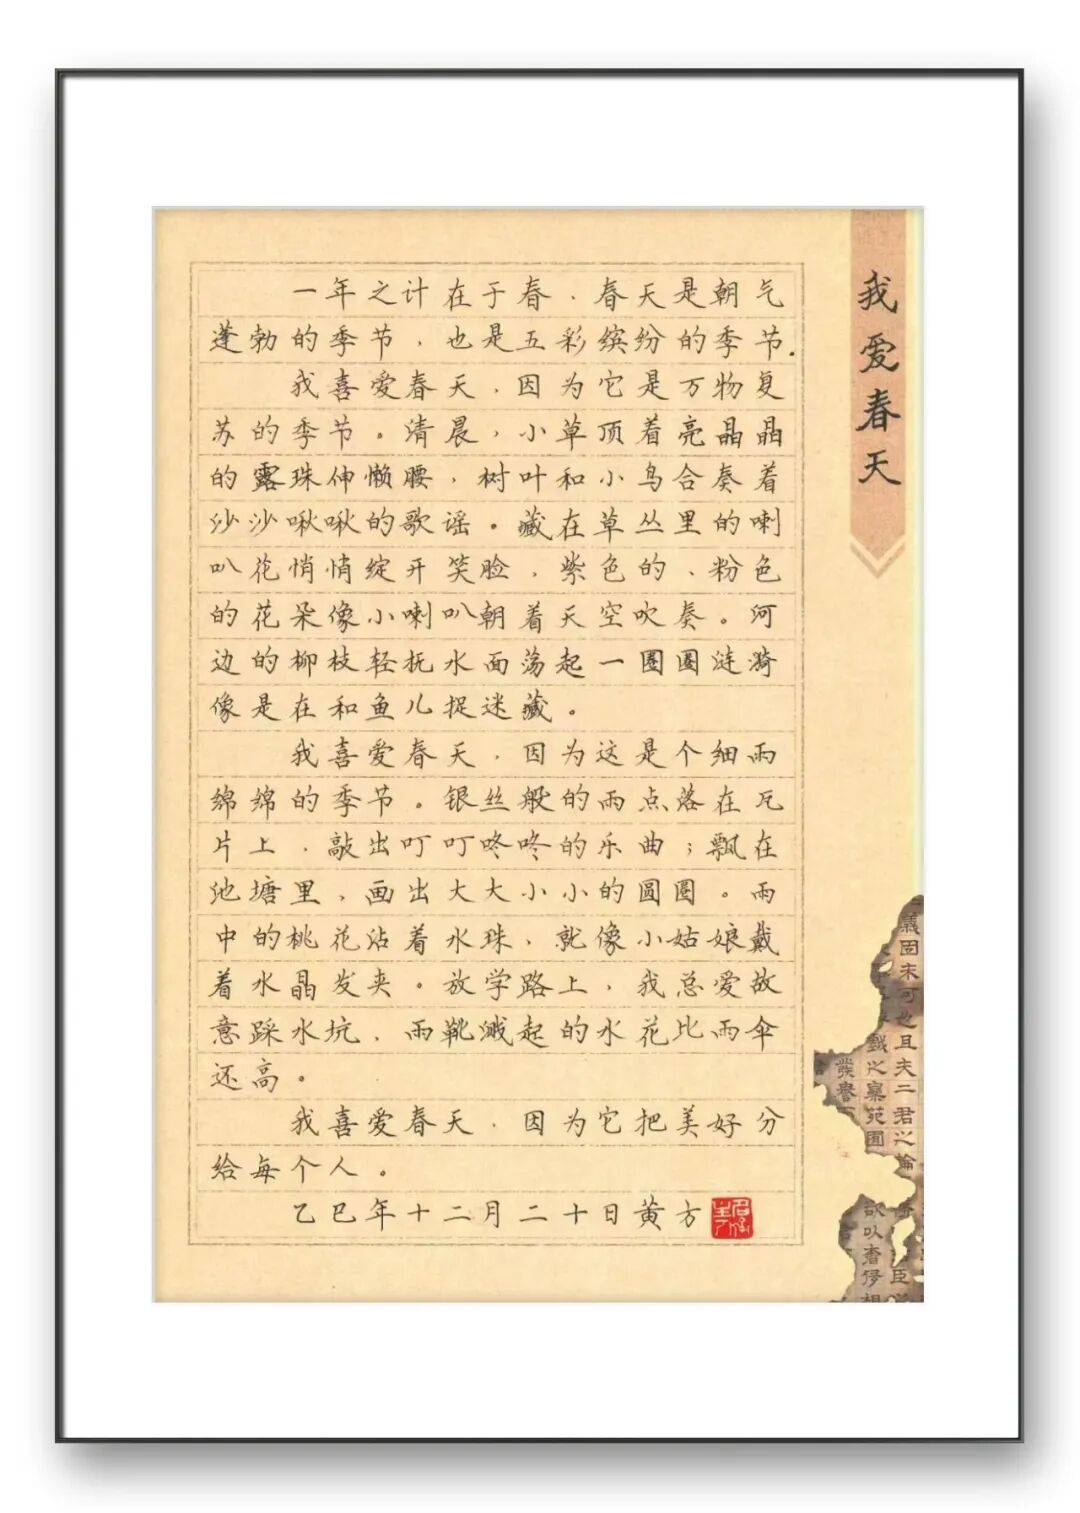 我爱春天
一年之计在于春，春天是朝气
蓬勃的季节，也是五彩缤纷的季节.
我喜爱春天，因为它是万物复
苏的季节。清晨，小草顶着亮晶晶
的露珠伸懒腰，树叶和小鸟合奏着
沙沙啾啾的歌谣。藏在草丛里的喇
叭花悄悄绽开笑脸，紫色的、粉色
的花朵像小喇叭朝着天空吹奏。河
边的柳枝轻抚水面荡起一圈圈涟漪
像是在和鱼儿捉迷藏。
我喜爱春天，因为这是个细雨
绵绵的季节。银丝般的雨点落在瓦
片上，敲出叮叮咚咚的乐曲；飘在
池塘里，画出大大小小的圆圈。雨
中的桃花沾着水珠，就像小姑娘戴
着水晶发夹。放学路上，我总爱故
意踩水坑，雨靴溅起的水花比雨伞
还高。
我喜爱春天，因为它把美好分
给每个人。
乙巳年十二月二十日黄方
義固未可
也且夫二君之論
戲之窠苑囿
發譽
欲以奢侈相
臣